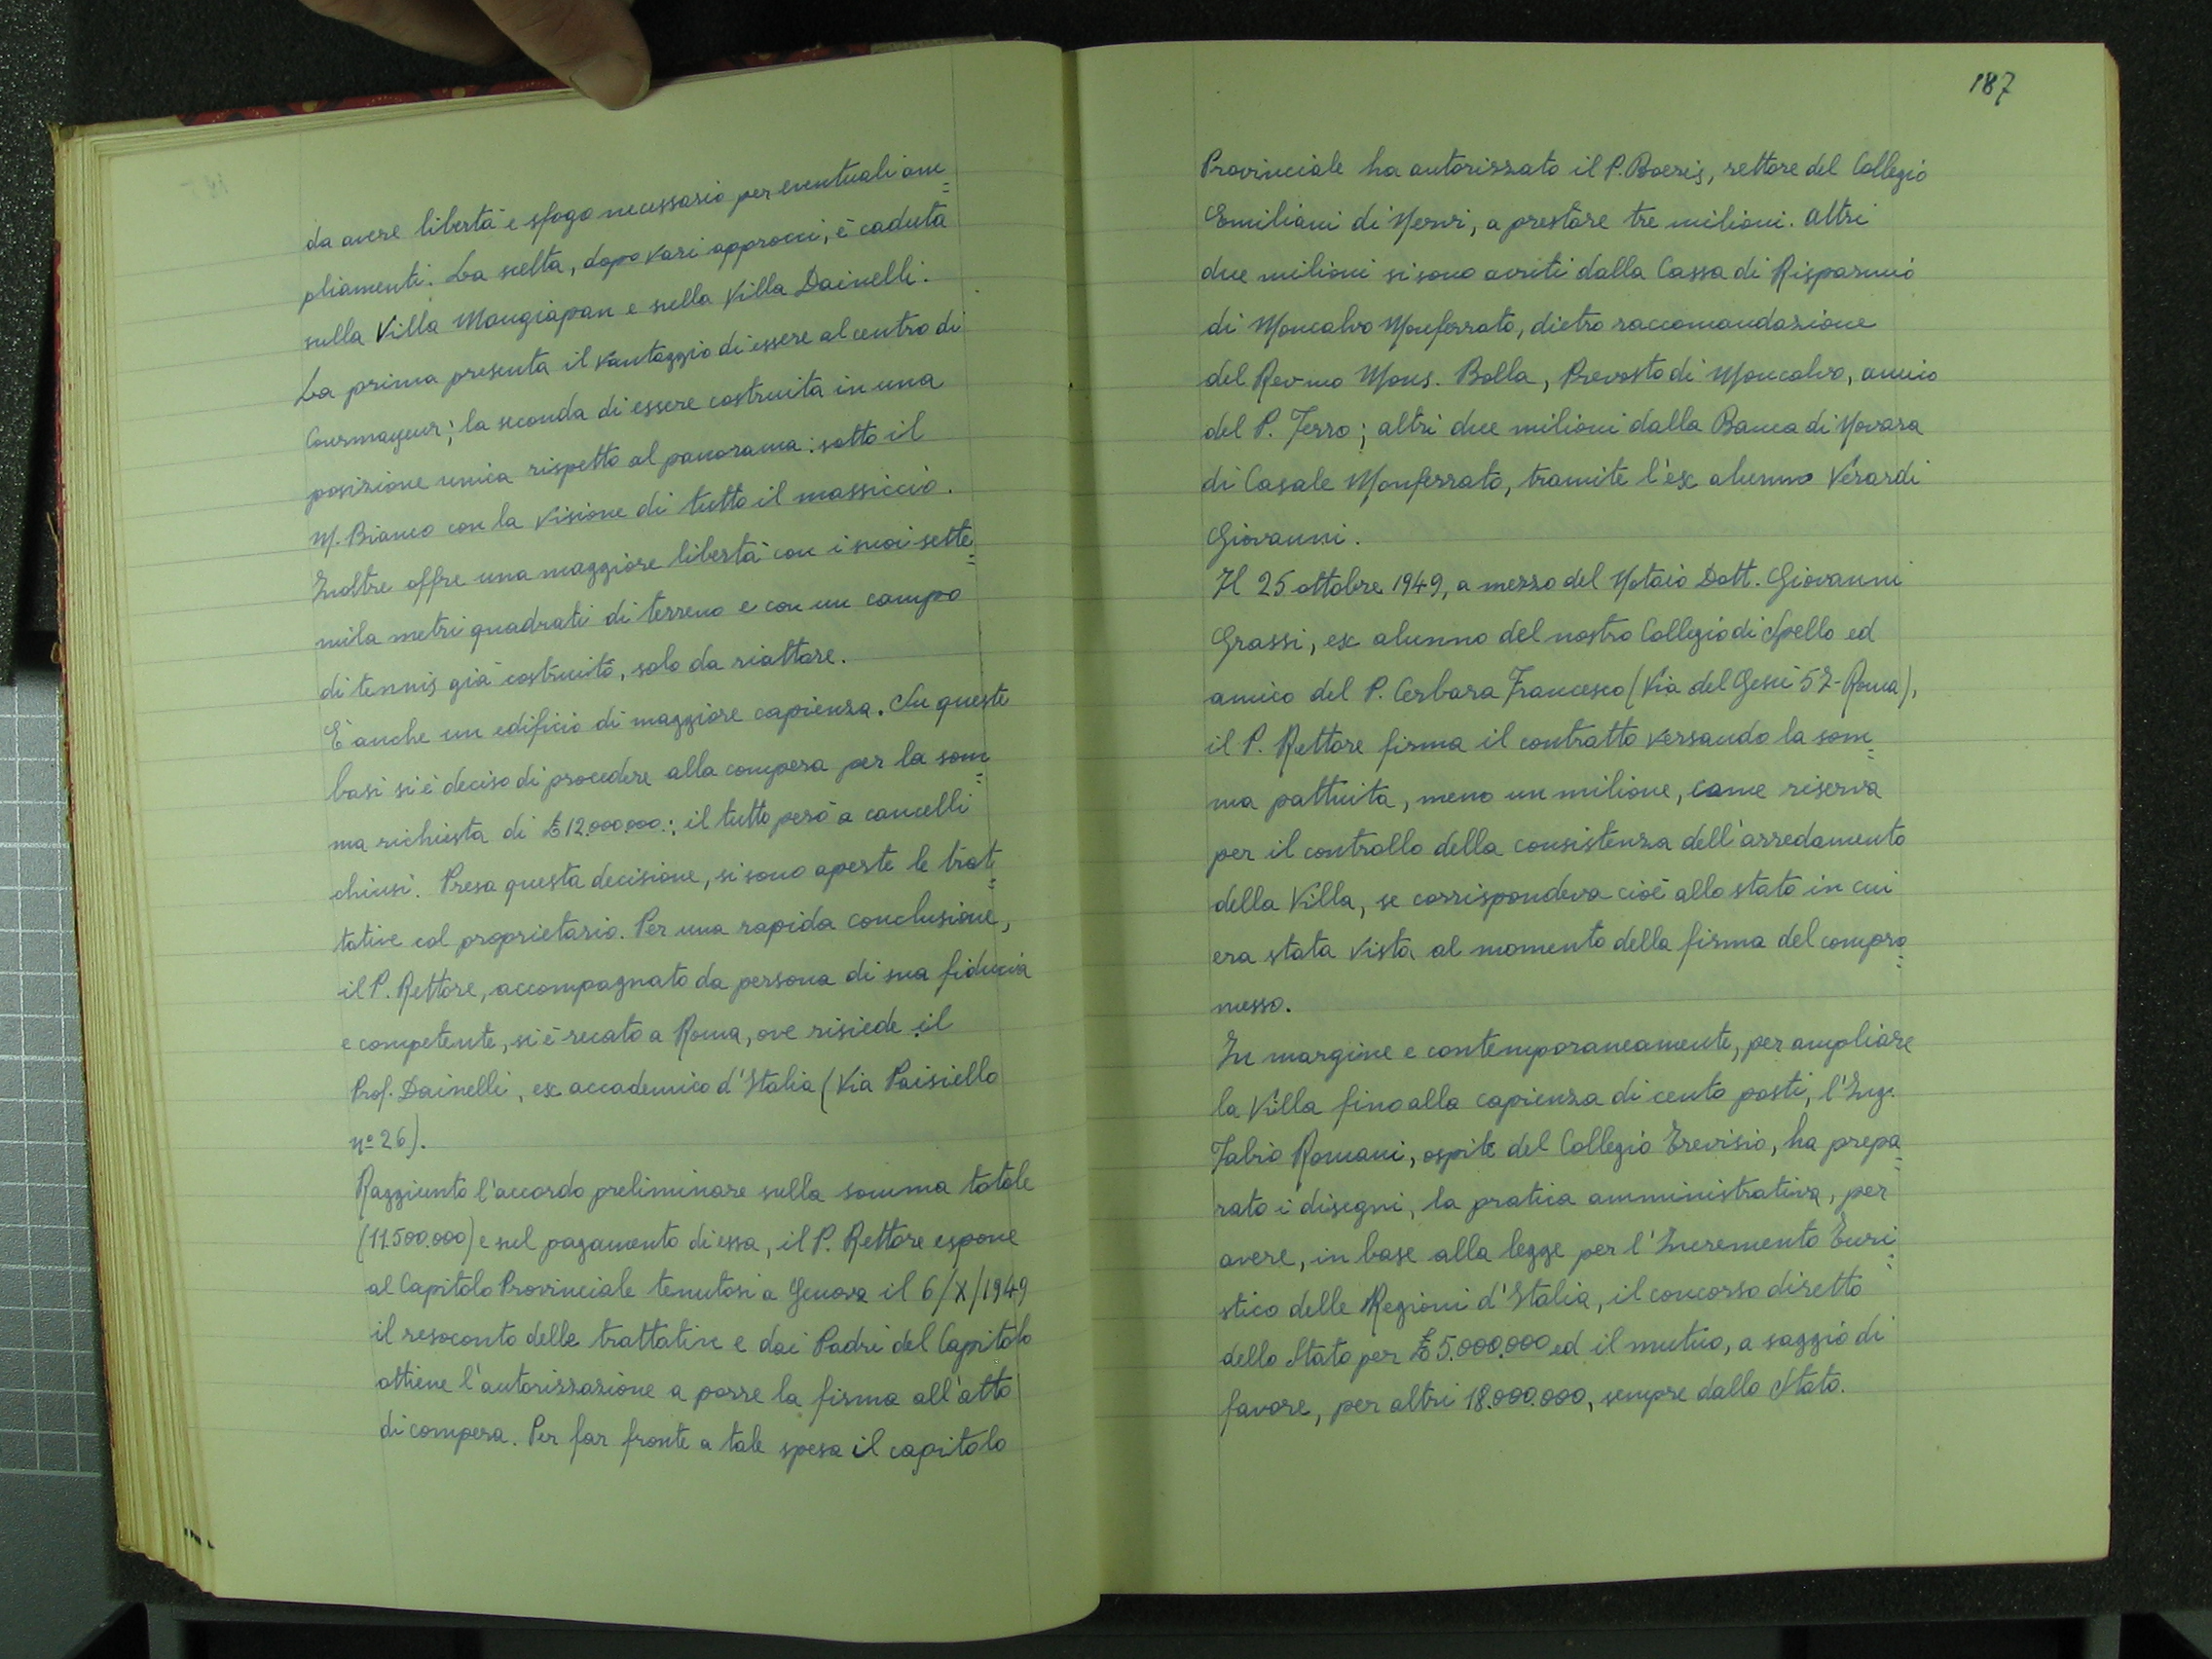 da avere libertà e sfogo necessario per eventuali am=
pliamenti. La scelta, dopo vari approcci, è caduta
sulla Villa Mangiapan e sulla Villa Dainelli.
La prima presenta il vantaggio di essere al centro di
Courmayeur; la seconda di essere costruita in una
posizione unica rispetto al panorama: sotto il
M. Bianco con la visione di tutto il massiccio.
Inoltre offre una maggiore libertà con i suoi sette=
mila metri quadrati di terreno e con un campo
di tennis già costruito, solo da riattare.
È anche un edificio di maggiore capienza. Su queste
basi si è deciso di procedere alla compera per la som=
ma richiesta di £ 12.000.000.; il tutto però a cancelli
chiusi. Presa questa decisione, si sono aperte le trat=
tative col proprietario. Per una rapida conclusione,
il P. Rettore, accompagnato da persona di sua fiducia
e competente, si è recato a Roma, ove risiede il
Prof. Dainelli, ex accademico d'Italia (Via Paisiello
nº 26).
Raggiunto l'accordo preliminare sulla somma totale
(11.500.000) e sul pagamento di essa, il P. Rettore espone
al Capitolo Provinciale tenutosi a Genova il 6/X/1949
il resoconto delle trattative e dai Padri del Capitolo
ottiene l'autorizzazione a porre la firma all'atto
di compera. Per far fronte a tale spesa il capitolo
187
Provinciale ha autorizzato il P. Boeris, rettore del Collegio
Emiliani di Nervi, a prestare tre milioni. Altri
due milioni si sono avuti dalla Cassa di Risparmio
di Moncalvo Monferrato, dietro raccomandazione
del Rev-mo Mons. Bolla, Prevosto di Moncalvo, amico
del P. Ferro; altri due milioni dalla Banca di Novara
di Casale Monferrato, tramite l'ex alunno Verardi
Giovanni.
Il 25 ottobre 1949, a mezzo del Notaio Dott. Giovanni
Grassi, ex alunno del nostro Collegio di Spello ed
amico del P. Cerbara Francesco (Via del Gesù 57-Roma),
il P. Rettore firma il contratto versando la som=
ma pattuita, meno un milione, come riserva
per il controllo della consistenza dell'arredamento
della Villa, se corrispondeva cioè allo stato in cui
era stata vista al momento della firma del compro=
messo.
In margine e contemporaneamente, per ampliare
la Villa fino alla capienza di cento posti, l'Ing.
Fabio Romani, ospite del Collegio Trevisio, ha prepa=
rato i disegni, la pratica amministrativa, per
avere, in base alla legge per l'Incremento Turi=
stico delle Regioni d'Italia, il concorso diretto
dello Stato per £ 5.000.000 ed il mutuo, a saggio di
favore, per altri 18.000.000, sempre dallo Stato.